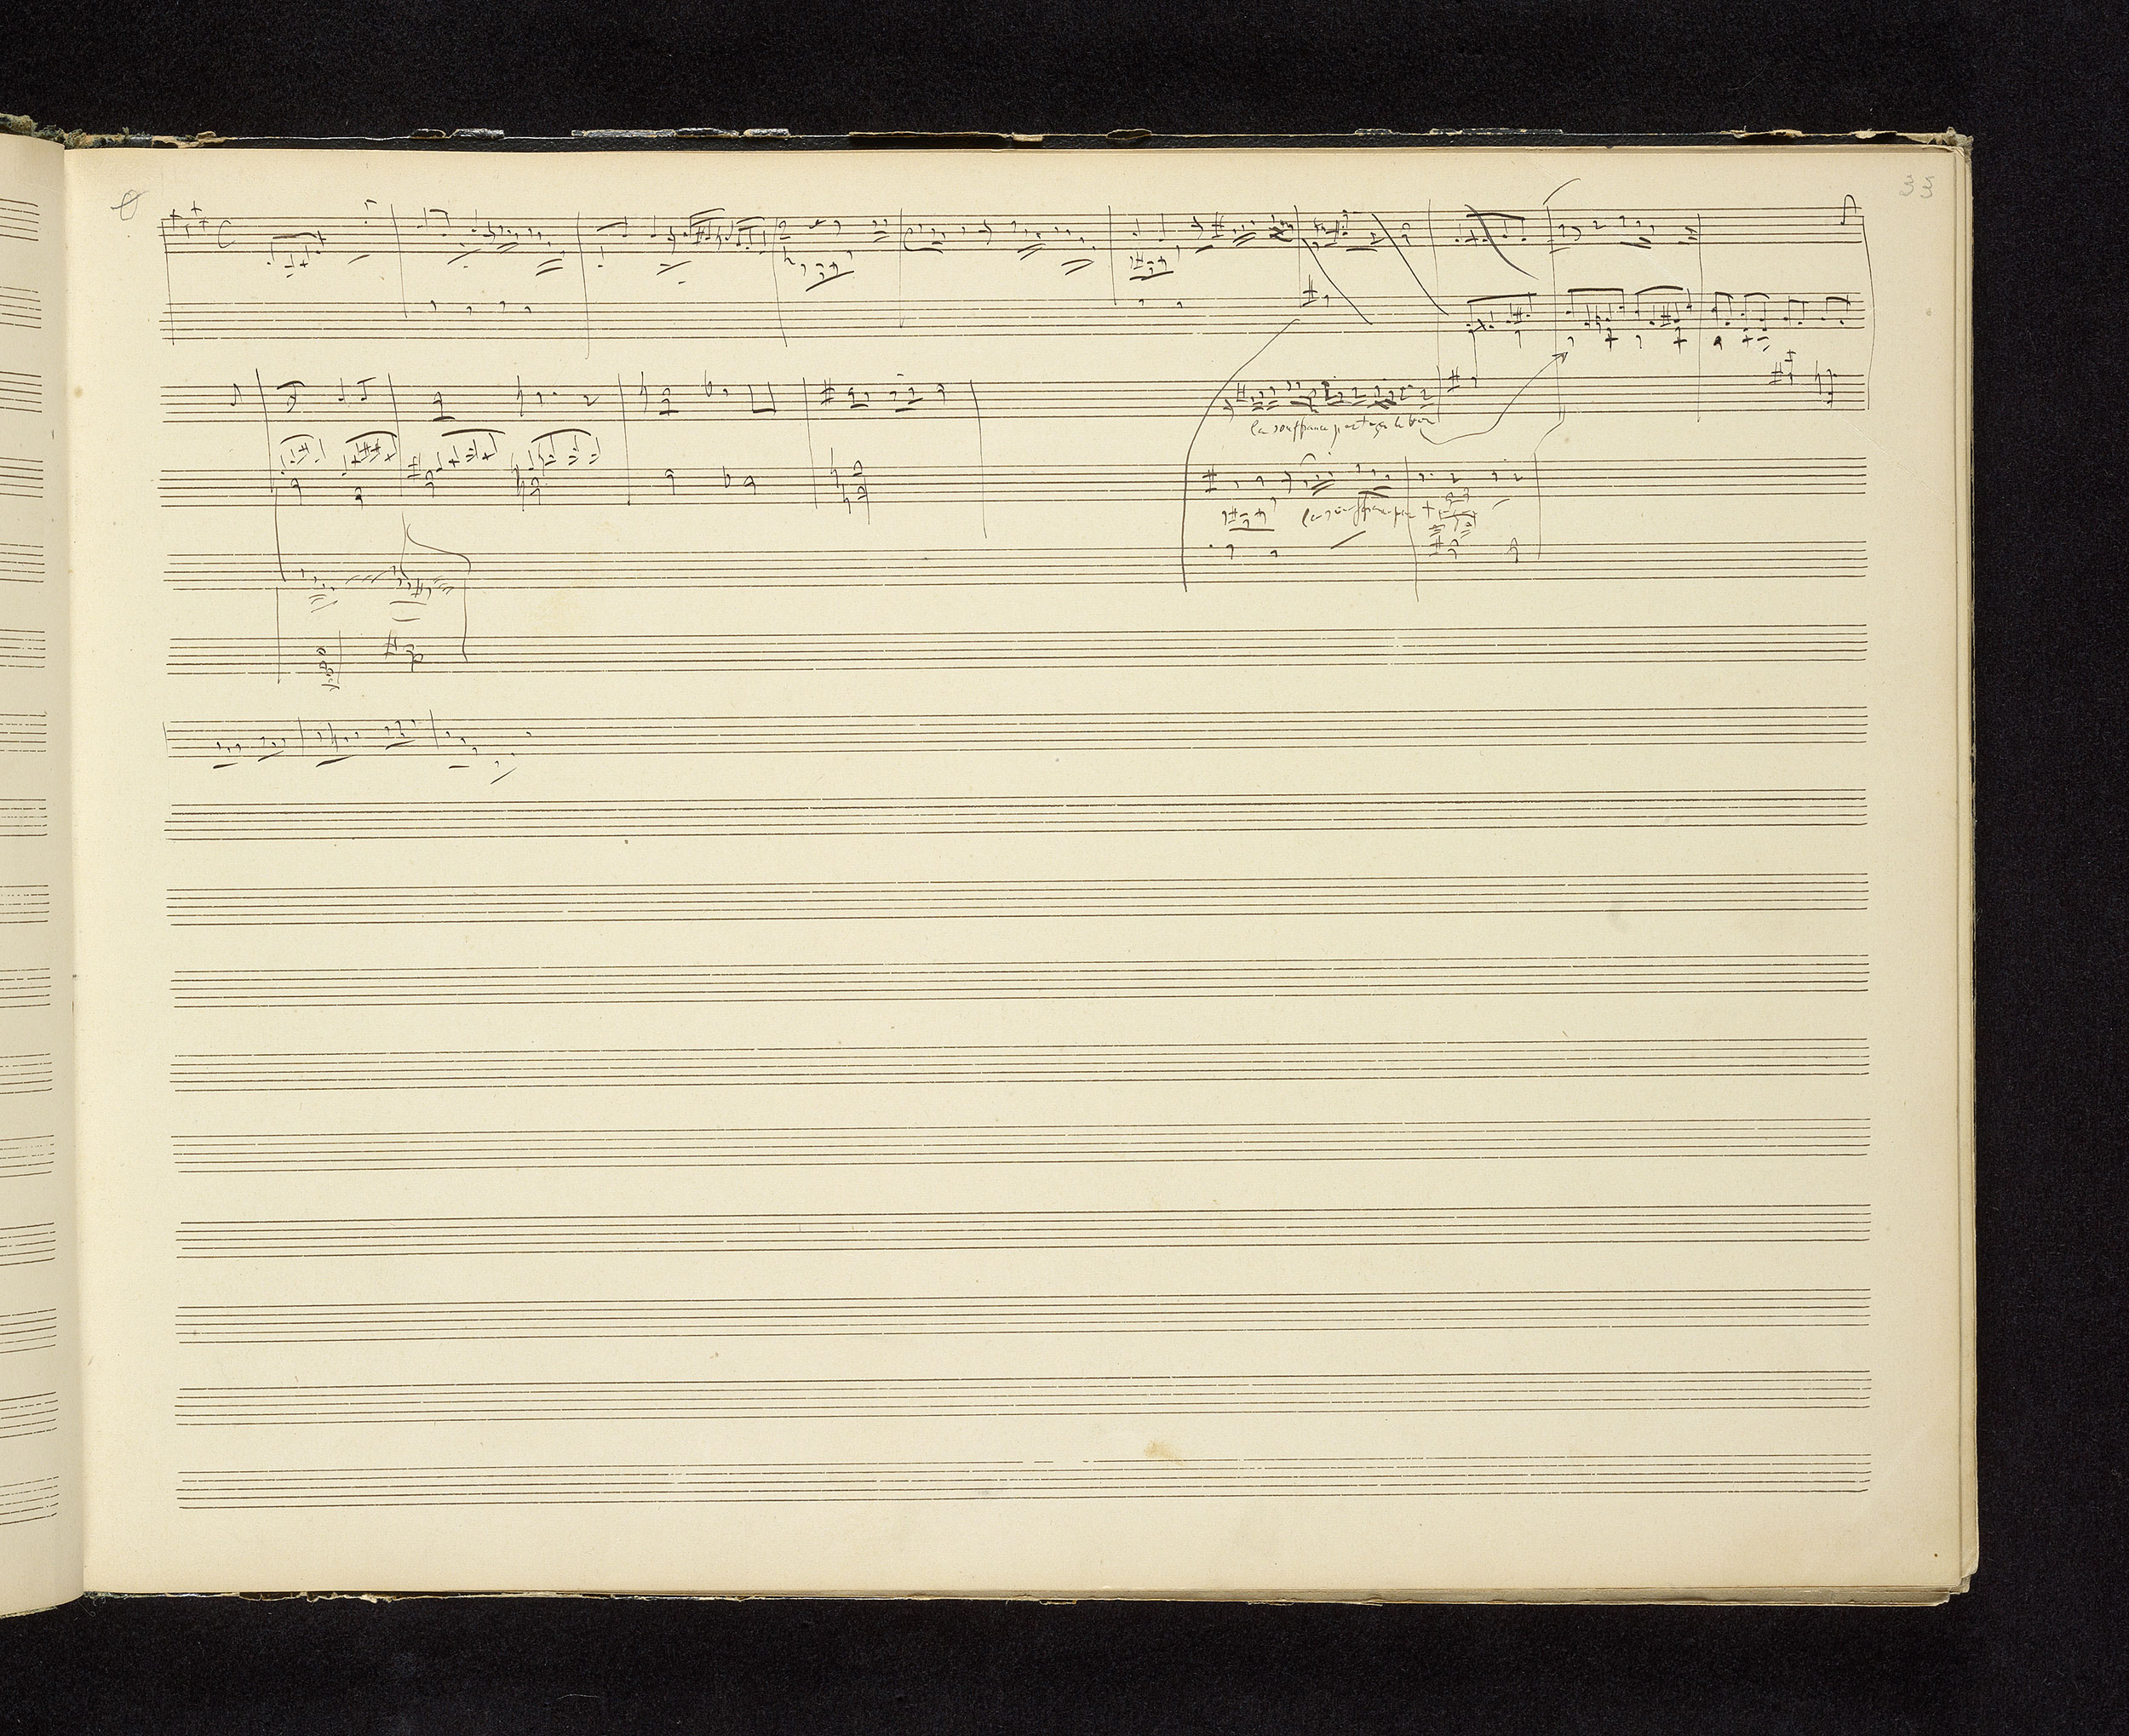 33
la souffrance partage le
la souffrance par